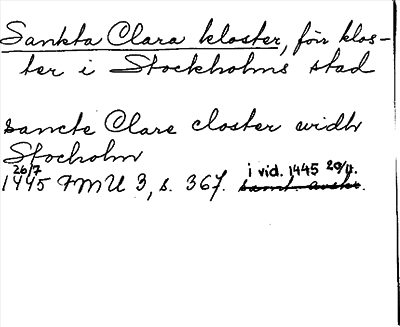 Sankta Clara kloster, förr klos-
ter i Stockholms stad
sancte Clare closter widh
Stocholm
26/7
1445 FMU 3, s. 367. i vid. 1445 29/11. samt. avskr.